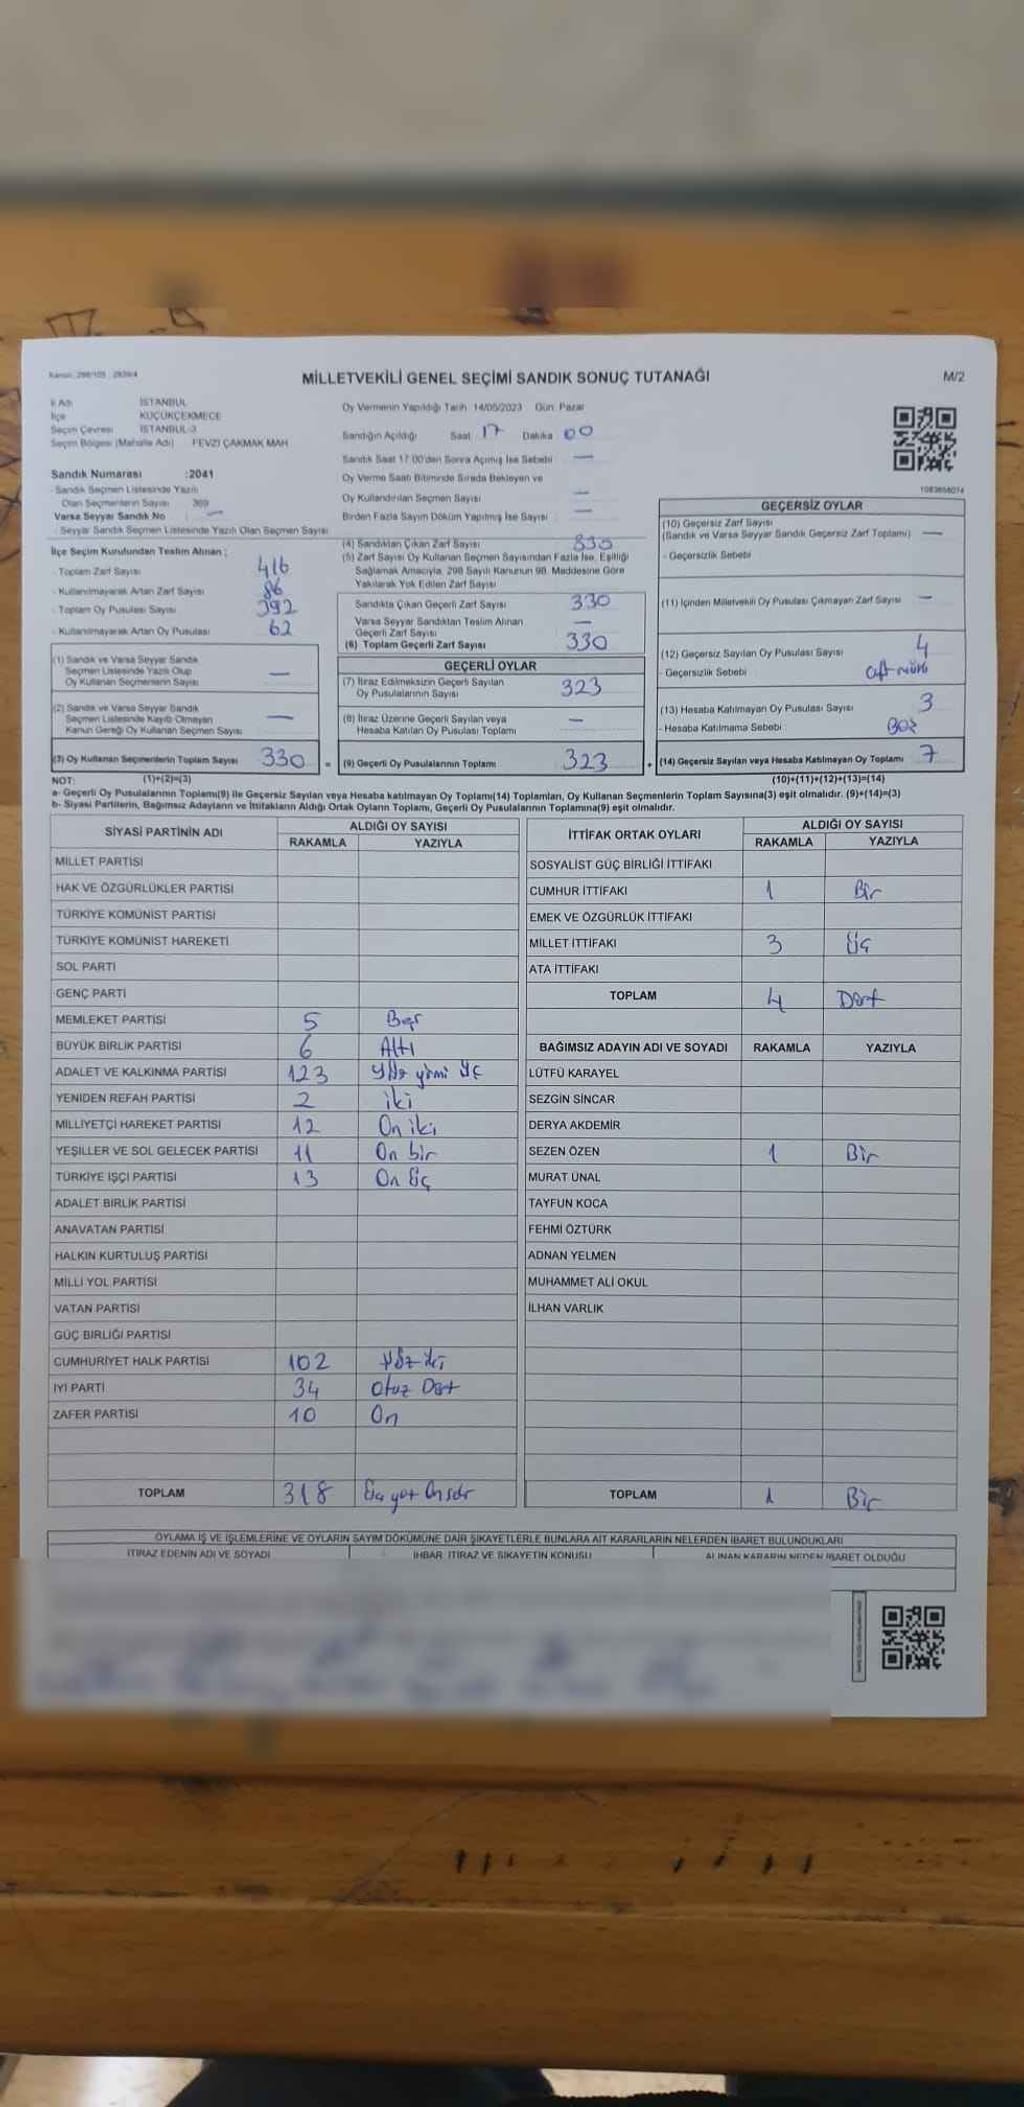 Kanun: 298/105 2839/4
MİLLETVEKİLİ GENEL SEÇİMİ SANDIK SONUÇ TUTANAĞI
M/2
İl Adı İSTANBUL
İlçe KÜÇÜKÇEKMECE
Seçim Çevresi İSTANBUL-3
Seçim Bölgesi (Mahalle Adı) FEVZİ ÇAKMAK MAH
Sandık Numarası :2041
- Sandık Seçmen Listesinde Yazılı
Olan Seçmenlerin Sayısı 369
Varsa Seyyar Sandık No : —
- Seyyar Sandık Seçmen Listesinde Yazılı Olan Seçmen Sayısı
İlçe Seçim Kurulundan Teslim Alınan ;
- Toplam Zarf Sayısı 416
- Kullanılmayarak Artan Zarf Sayısı 86
- Toplam Oy Pusulası Sayısı 392
- Kullanılmayarak Artan Oy Pusulası 62
(1) Sandık ve Varsa Seyyar Sandık
Seçmen Listesinde Yazılı Olup
Oy Kullanan Seçmenlerin Sayısı —
(2) Sandık ve Varsa Seyyar Sandık
Seçmen Listesinde Kayıtlı Olmayan
Kanun Gereği Oy Kullanan Seçmen Sayısı —
(3) Oy Kullanan Seçmenlerin Toplam Sayısı 330
Oy Vermenin Yapıldığı Tarih 14/05/2023 Gün: Pazar
Sandığın Açıldığı Saat 17 Dakika 00
Sandık Saat 17:00'den Sonra Açılmış İse Sebebi —
Oy Verme Saati Bitiminde Sırada Bekleyen ve
Oy Kullandırılan Seçmen Sayısı —
Birden Fazla Sayım Döküm Yapılmış İse Sayısı —
(4) Sandıktan Çıkan Zarf Sayısı 330
(5) Zarf Sayısı Oy Kullanan Seçmen Sayısından Fazla İse, Eşitliği
Sağlamak Amacıyla, 298 Sayılı Kanunun 98. Maddesine Göre
Yakılarak Yok Edilen Zarf Sayısı
Sandıkta Çıkan Geçerli Zarf Sayısı 330
Varsa Seyyar Sandıktan Teslim Alınan
Geçerli Zarf Sayısı —
(6) Toplam Geçerli Zarf Sayısı 330
GEÇERLİ OYLAR
(7) İtiraz Edilmeksizin Geçerli Sayılan
Oy Pusulalarının Sayısı 323
(8) İtiraz Üzerine Geçerli Sayılan veya
Hesaba Katılan Oy Pusulası Toplamı —
= (9) Geçerli Oy Pusulalarının Toplamı 323
1083656014
GEÇERSİZ OYLAR
(10) Geçersiz Zarf Sayısı
(Sandık ve Varsa Seyyar Sandık Geçersiz Zarf Toplamı) —
- Geçersizlik Sebebi
(11) İçinden Milletvekili Oy Pusulası Çıkmayan Zarf Sayısı —
(12) Geçersiz Sayılan Oy Pusulası Sayısı 4
- Geçersizlik Sebebi Çift mühü
(13) Hesaba Katılmayan Oy Pusulası Sayısı 3
- Hesaba Katılmama Sebebi : Boş
+ (14) Geçersiz Sayılan veya Hesaba Katılmayan Oy Toplamı 7
NOT: (1)+(2)=(3) (10)+(11)+(12)+(13)=(14)
a- Geçerli Oy Pusulalarının Toplamı(9) ile Geçersiz Sayılan veya Hesaba katılmayan Oy Toplamı(14) Toplamları, Oy Kullanan Seçmenlerin Toplam Sayısına(3) eşit olmalıdır. (9)+(14)=(3)
b- Siyasi Partilerin, Bağımsız Adayların ve İttifakların Aldığı Ortak Oyların Toplamı, Geçerli Oy Pusulalarının Toplamına(9) eşit olmalıdır.
SİYASİ PARTİNİN ADI ALDIĞI OY SAYISI
RAKAMLA YAZIYLA
MİLLET PARTİSİ
HAK VE ÖZGÜRLÜKLER PARTİSİ
TÜRKİYE KOMÜNİST PARTİSİ
TÜRKİYE KOMÜNİST HAREKETİ
SOL PARTİ
GENÇ PARTİ
MEMLEKET PARTİSİ 5 Beş
BÜYÜK BİRLİK PARTİSİ 6 Altı
ADALET VE KALKINMA PARTİSİ 123 Yüz yirmi Üç
YENİDEN REFAH PARTİSİ 2 iki
MİLLİYETÇİ HAREKET PARTİSİ 12 On iki
YEŞİLLER VE SOL GELECEK PARTİSİ 11 On bir
TÜRKİYE İŞÇİ PARTİSİ 13 On Üç
ADALET BİRLİK PARTİSİ
ANAVATAN PARTİSİ
HALKIN KURTULUŞ PARTİSİ
MİLLİ YOL PARTİSİ
VATAN PARTİSİ
GÜÇ BİRLİĞİ PARTİSİ
CUMHURİYET HALK PARTİSİ 102 Yüz iki
İYİ PARTİ 34 Otuz Dört
ZAFER PARTİSİ 10 On
TOPLAM 318 Üç yüz Onsekiz
İTTİFAK ORTAK OYLARI ALDIĞI OY SAYISI
RAKAMLA YAZIYLA
SOSYALİST GÜÇ BİRLİĞİ İTTİFAKI
CUMHUR İTTİFAKI 1 Bir
EMEK VE ÖZGÜRLÜK İTTİFAKI
MİLLET İTTİFAKI 3 Üç
ATA İTTİFAKI
TOPLAM 4 Dört
BAĞIMSIZ ADAYIN ADI VE SOYADI RAKAMLA YAZIYLA
LÜTFÜ KARAYEL
SEZGİN SİNCAR
DERYA AKDEMİR
SEZEN ÖZEN 1 Bir
MURAT ÜNAL
TAYFUN KOCA
FEHMİ ÖZTÜRK
ADNAN YELMEN
MUHAMMET ALİ OKUL
İLHAN VARLIK
TOPLAM 1 Bir
OYLAMA İŞ VE İŞLEMLERİNE VE OYLARIN SAYIM DÖKÜMÜNE DAİR ŞİKAYETLERLE BUNLARA AİT KARARLARIN NELERDEN İBARET BULUNDUKLARI
İTİRAZ EDENİN ADI VE SOYADI İHBAR İTİRAZ VE ŞİKAYETİN KONUSU ALINAN KARARIN NEDEN İBARET OLDUĞU